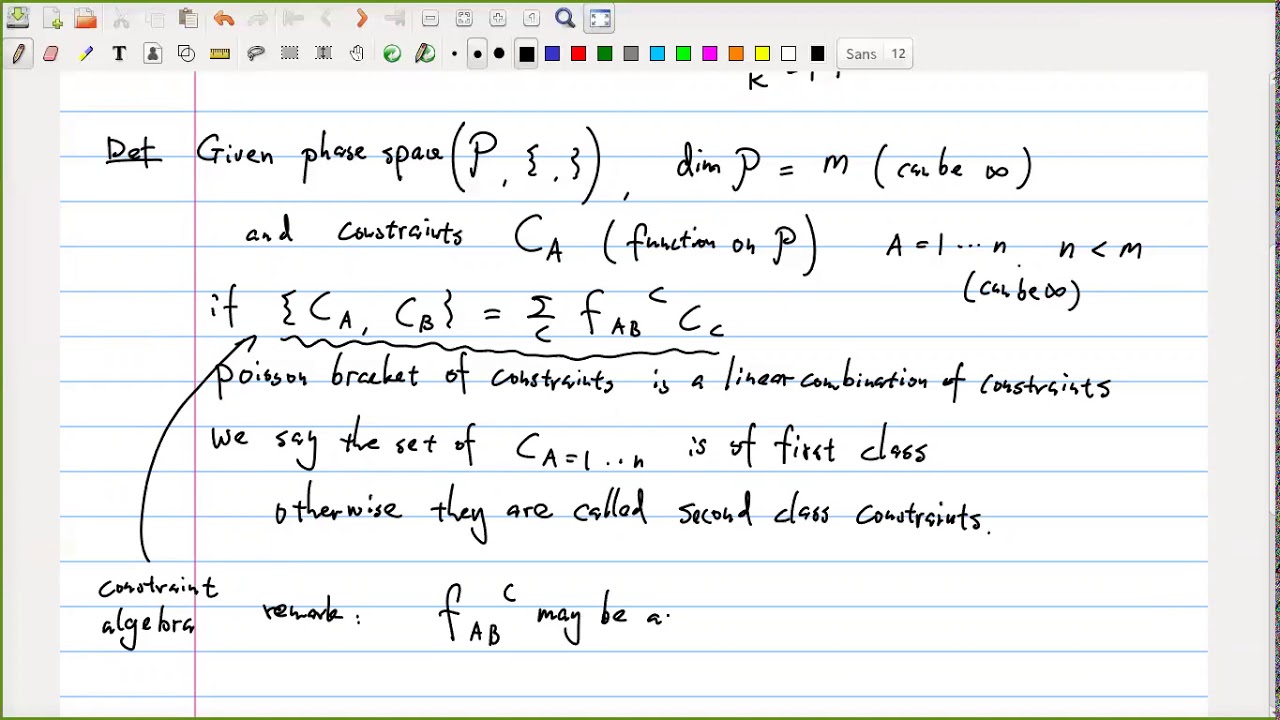 T
Sans 12
Def Given phase space (P, { , }), dim P = m (can be ∞)
and constraints C_A (function on P) A = 1 ... n n < m
(can be ∞)
if {C_A, C_B} = Σ_C f_AB^C C_C
poisson bracket of constraints is a linear combination of constraints
we say the set of C_A=1...n is of first class
otherwise they are called second class constraints.
constraint
algebra
remark: f_AB^C may be a